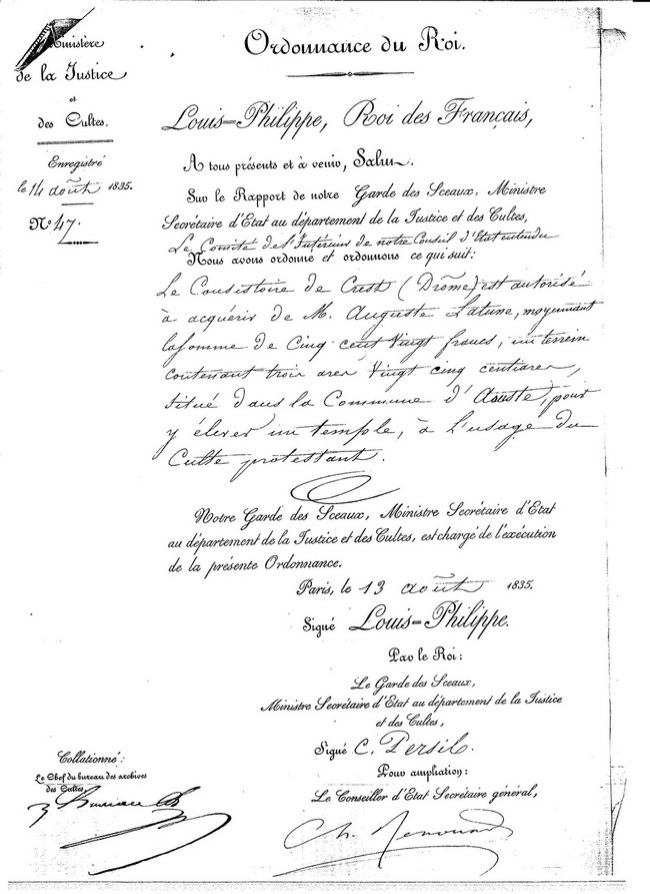 Ministère
de la Justice
et
des Cultes.
Enregistré
le 14 août 1835.
N° 47.
Ordonnance du Roi.
Louis=Philippe, Roi des Français,
A tous présents et à venir, Salut.
Sur le Rapport de notre Garde des Sceaux, Ministre
Secrétaire d'Etat au département de la Justice et des Cultes,
Le Comité de l'Intérieur de notre Conseil d'Etat entendu
Nous avons ordonné et ordonnons ce qui suit:
Le Consistoire de Crest (Drôme) est autorisé
à acquérir de M. Auguste Latune, moyennant
la somme de Cinq cent Vingt francs, un terrein
contenant trois ares Vingt cinq centiares,
situé dans la Commune d'Aouste, pour
y élever un temple, à l'usage du
Culte protestant.
Notre Garde des Sceaux, Ministre Secrétaire d'Etat
au département de la Justice et des Cultes, est chargé de l'exécution
de la présente Ordonnance.
Paris, le 13 août 1835.
Signé Louis=Philippe.
Par le Roi:
Le Garde des Sceaux,
Ministre Secrétaire d'Etat au département de la Justice
et des Cultes,
Signé C. Persil.
Pour ampliation:
Le Conseiller d'Etat Secrétaire général,
Ch. Renouard
Collationné:
Le Chef du bureau des archives
des Cultes,